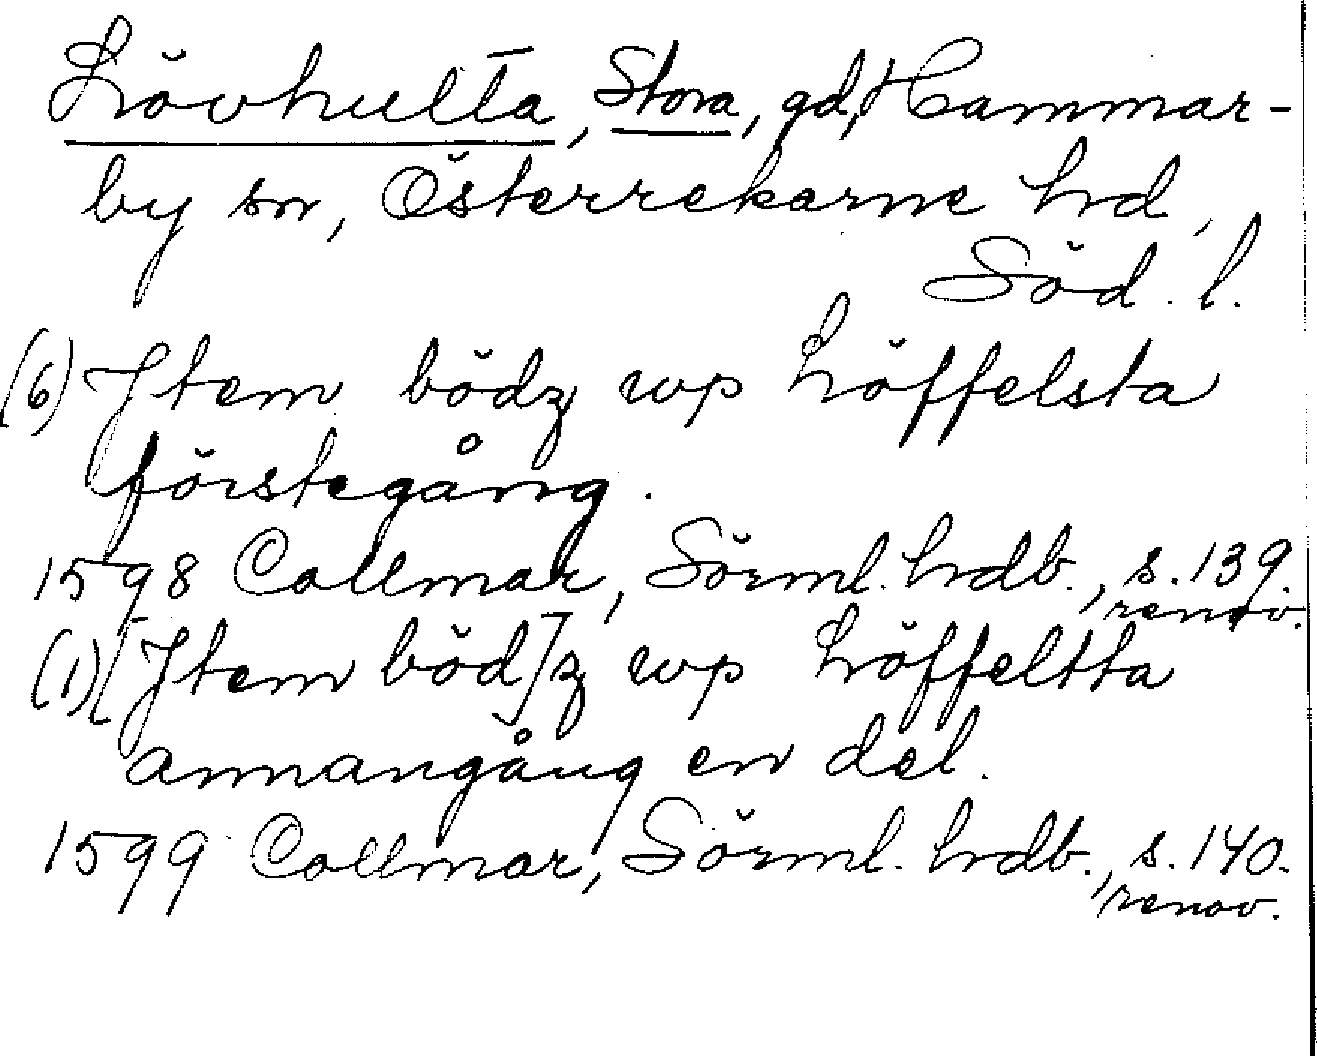 Lövhulta, Stora, gd, Hammar-
by sn, Österrekarne hd,
Söd. l.
(6) Jtem bödz wp Löffelsta
förstegång.
1598 Collmar, Sörml. hdb., s. 139.
renov.
(1) [Jtem böd]z wp Löffeltta
annangång en del.
1599 Collmar, Sörml. hdb., s. 140.
renov.